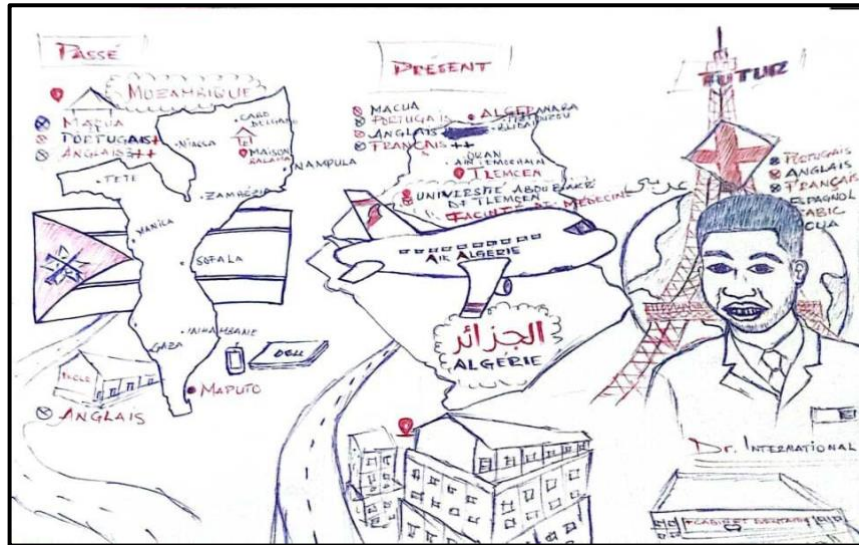 PASSÉ
MOZAMBIQUE
MACUA
PORTUGAIS+
ANGLAIS++
CABO DELGADO
NIASSA
MAISON
NAMPULA
TETE
ZAMBÉZIA
MANICA
SOFALA
INHAMBANE
GAZA
DELL
MAPUTO
ANGLAIS
PRÉSENT
MACUA
PORTUGAIS
ANGLAIS
FRANÇAIS ++
ALGER
ORAN
TLEMCEN
UNIVERSITÉ ABOUBAKR
DE TLEMCEN
FACULTÉ DE MÉDECINE
AIR ALGERIE
الجزائر
ALGÉRIE
FUTUR
PORTUGAIS
ANGLAIS
FRANÇAIS
ESPAGNOL
عربي
Dr. INTERNATIONAL
CABINET DENTAIRE